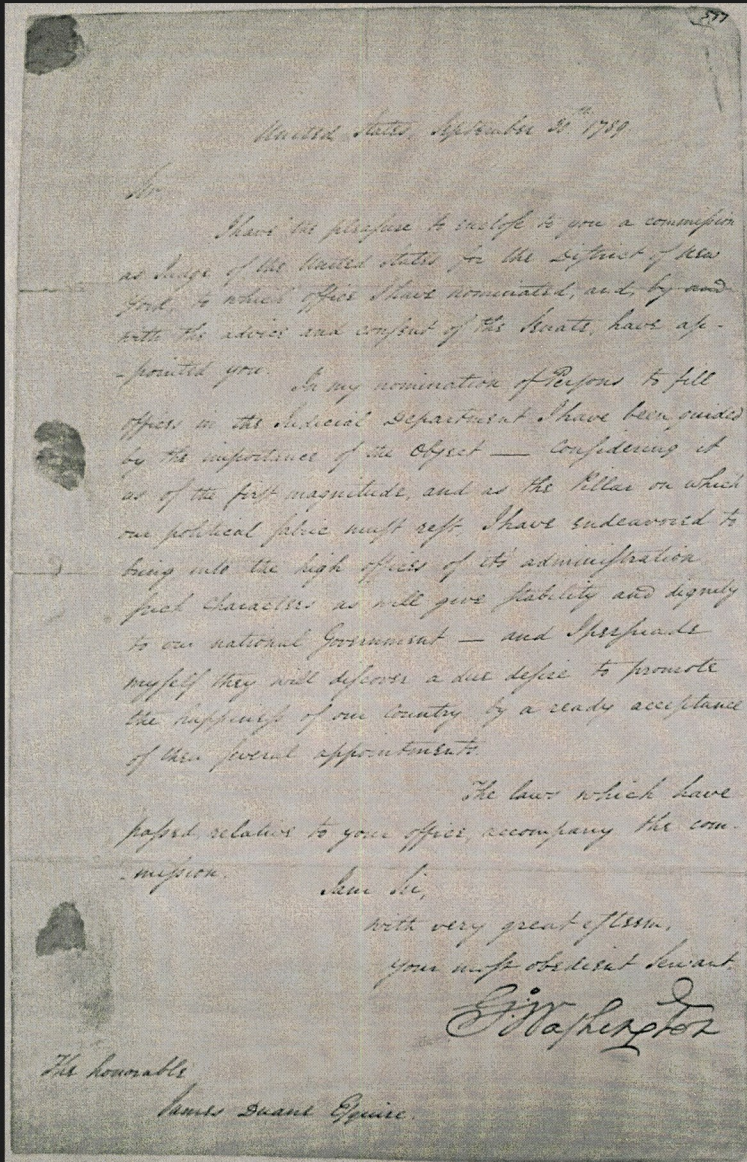 577
United States, September 30th 1789
Sir,
I have the pleasure to enclose to you a commission
as Judge of the United States for the District of New
York, to which office I have nominated, and, by and
with the advice and consent of the Senate, have ap-
-pointed you.
In my nomination of Persons to fill
offices in the Judicial Department I have been guided
by the importance of the object — Considering it
as of the first magnitude, and as the Pillar on which
our political fabric must rest, I have endeavored to
bring into the high offices of its administration
such characters as will give stability and dignity
to our national Government — and I persuade
myself they will discover a due desire to promote
the happiness of our Country by a ready acceptance
of their several appointments.
The laws which have
passed, relative to your office, accompany the com-
-mission.
I am Sir,
with very great esteem,
your most obedient Servant.
Go: Washington
The honorable
James Duane Esquire.